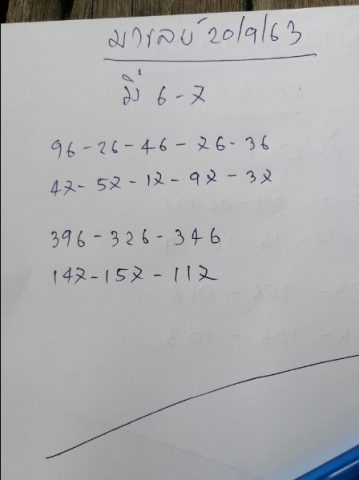 มาเลย์ 20/9/63
มี 6-7
96-26-46-76-36
47-57-17-97-37
396-326-346
147-157-117